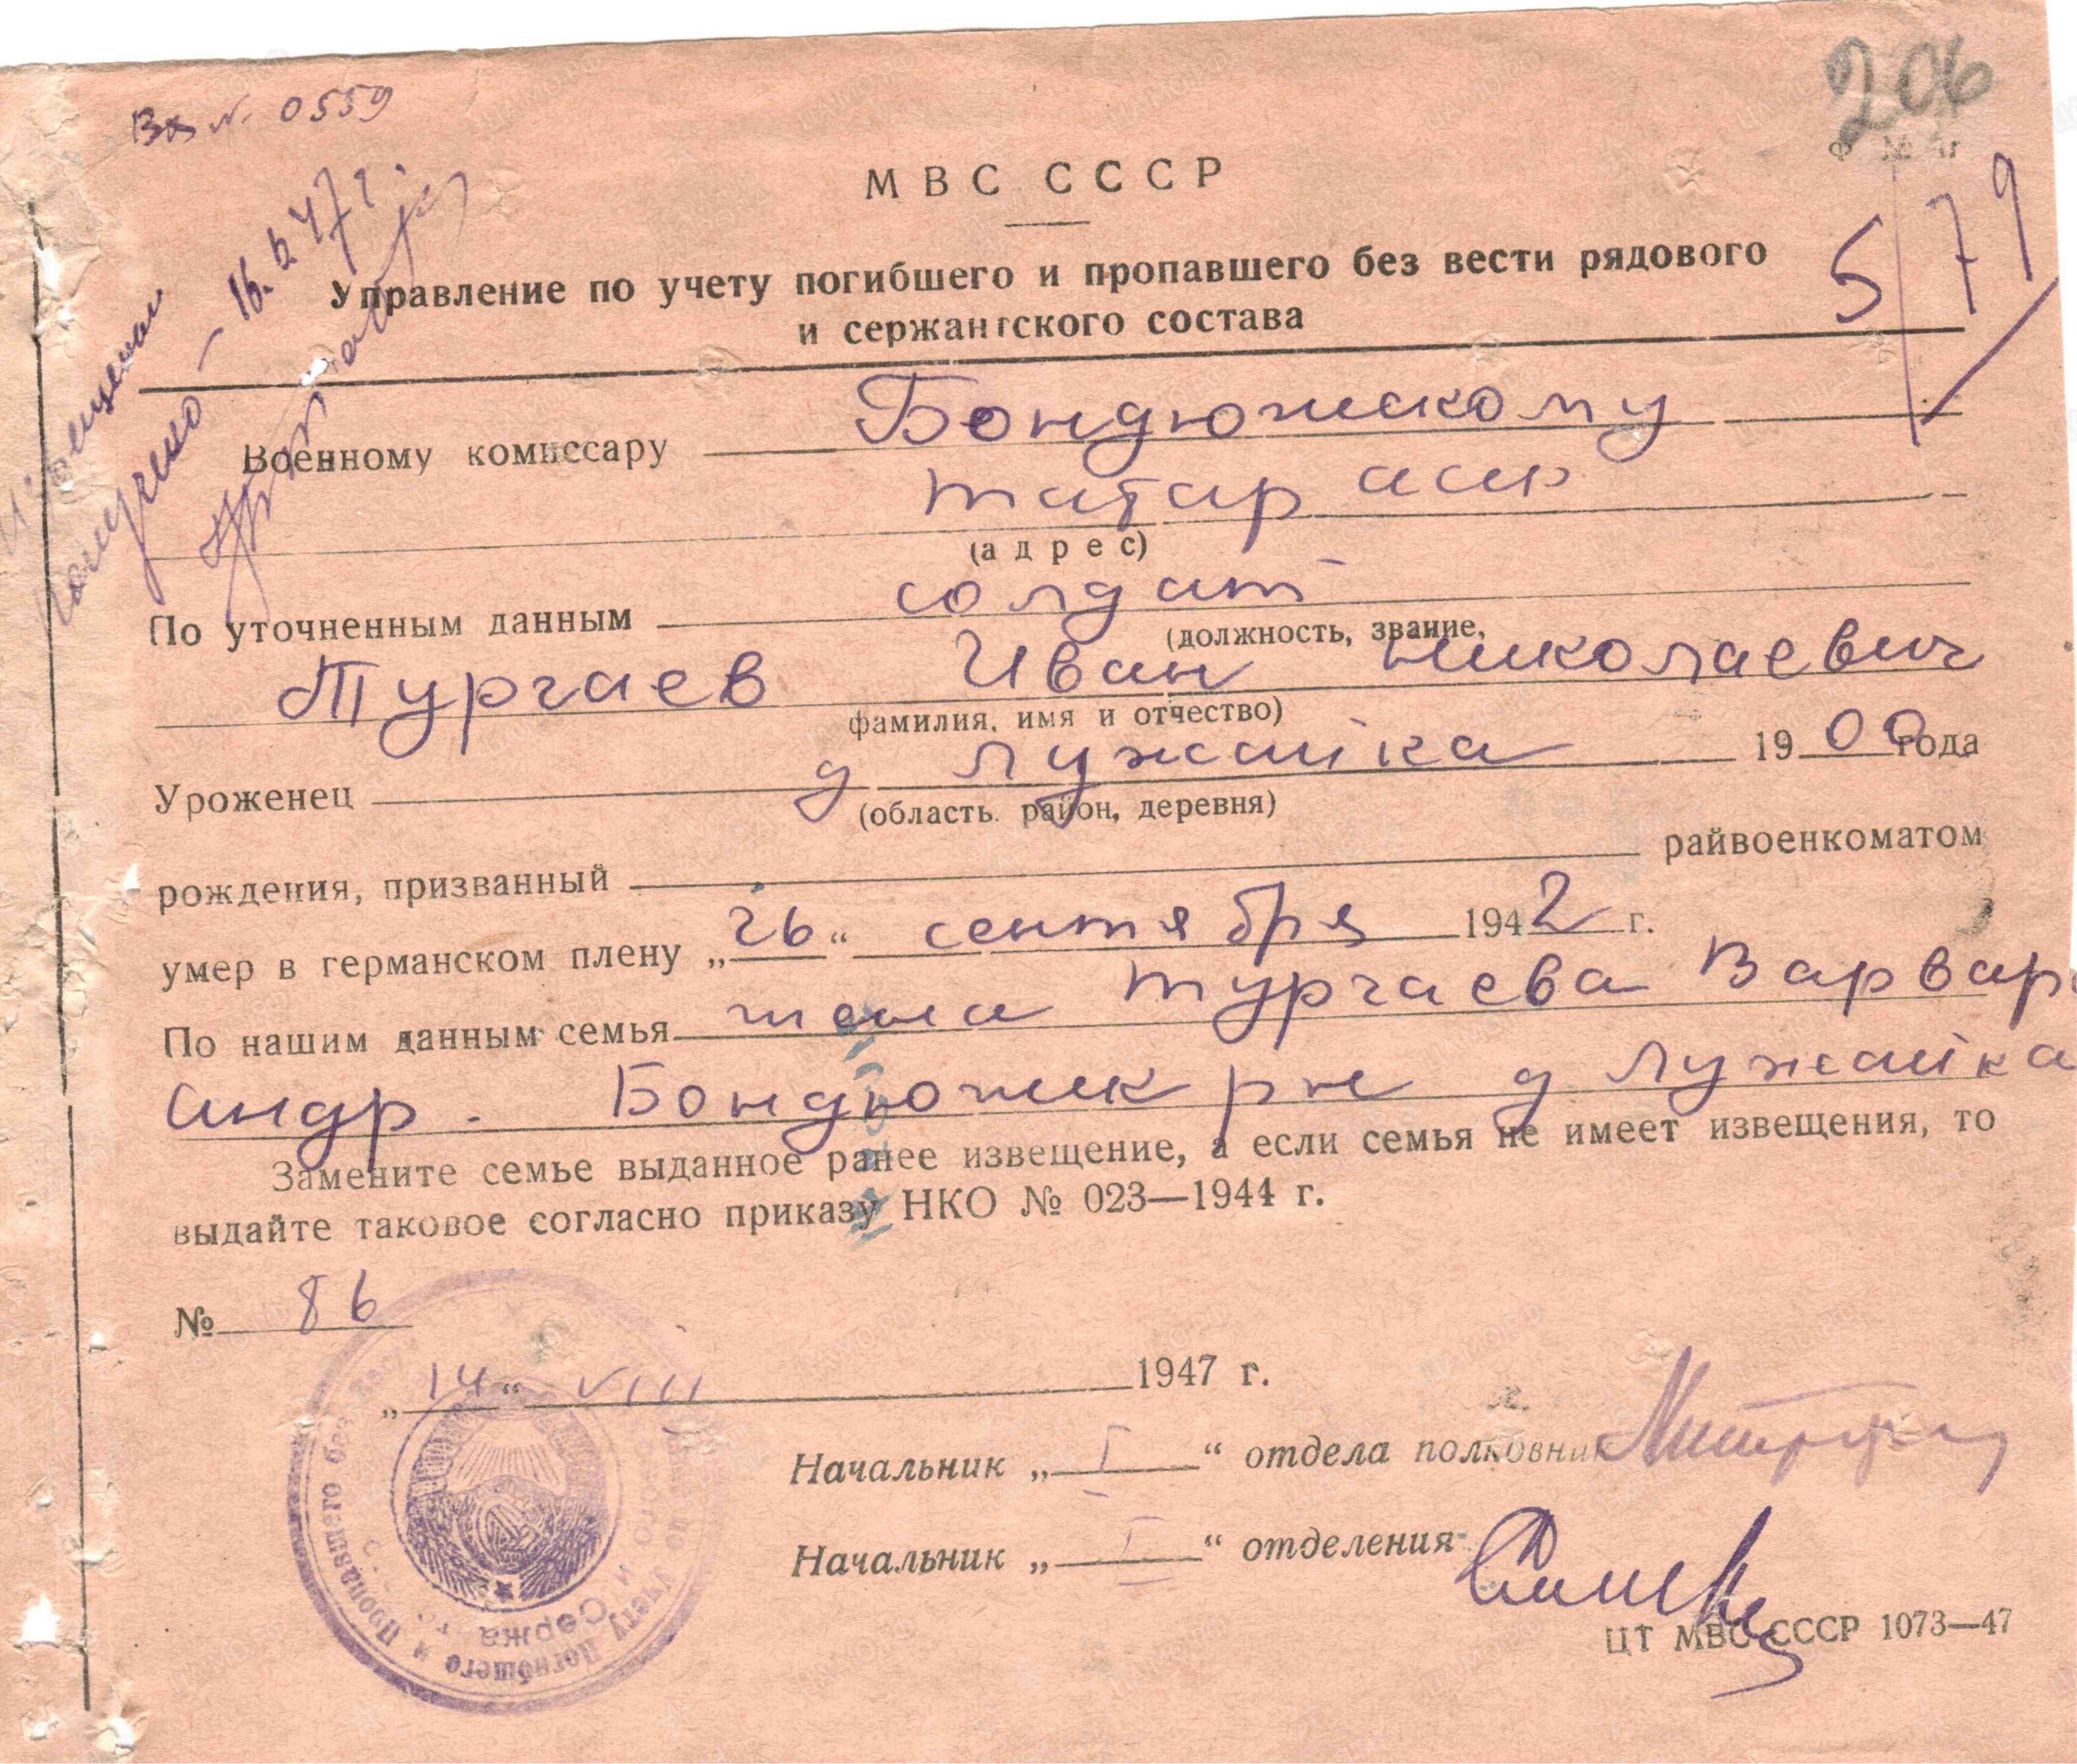 Вх № 0559
206
579
МВС СССР
Управление по учету погибшего и пропавшего без вести рядового
и сержантского состава
Военному комиссару Бондюжскому
татар асср
(адрес)
По уточненным данным солдат
(должность, звание,
Тургаев Иван Николаевич
фамилия, имя и отчество)
Уроженец д Лужайка 1900 года
(область. район, деревня)
рождения, призванный райвоенкоматом
умер в германском плену „26“ сентября 1942 г.
По нашим данным семья жена Тургаева Варвара
Андр. Бондюжск рн д Лужайка
Замените семье выданное ранее извещение, а если семья не имеет извещения, то
выдайте таковое согласно приказу НКО № 023—1944 г.
№ 86
„14“ VIII 1947 г.
Начальник „I“ отдела полковник
Начальник „I“ отделения
ЦТ МВС СССР 1073—47